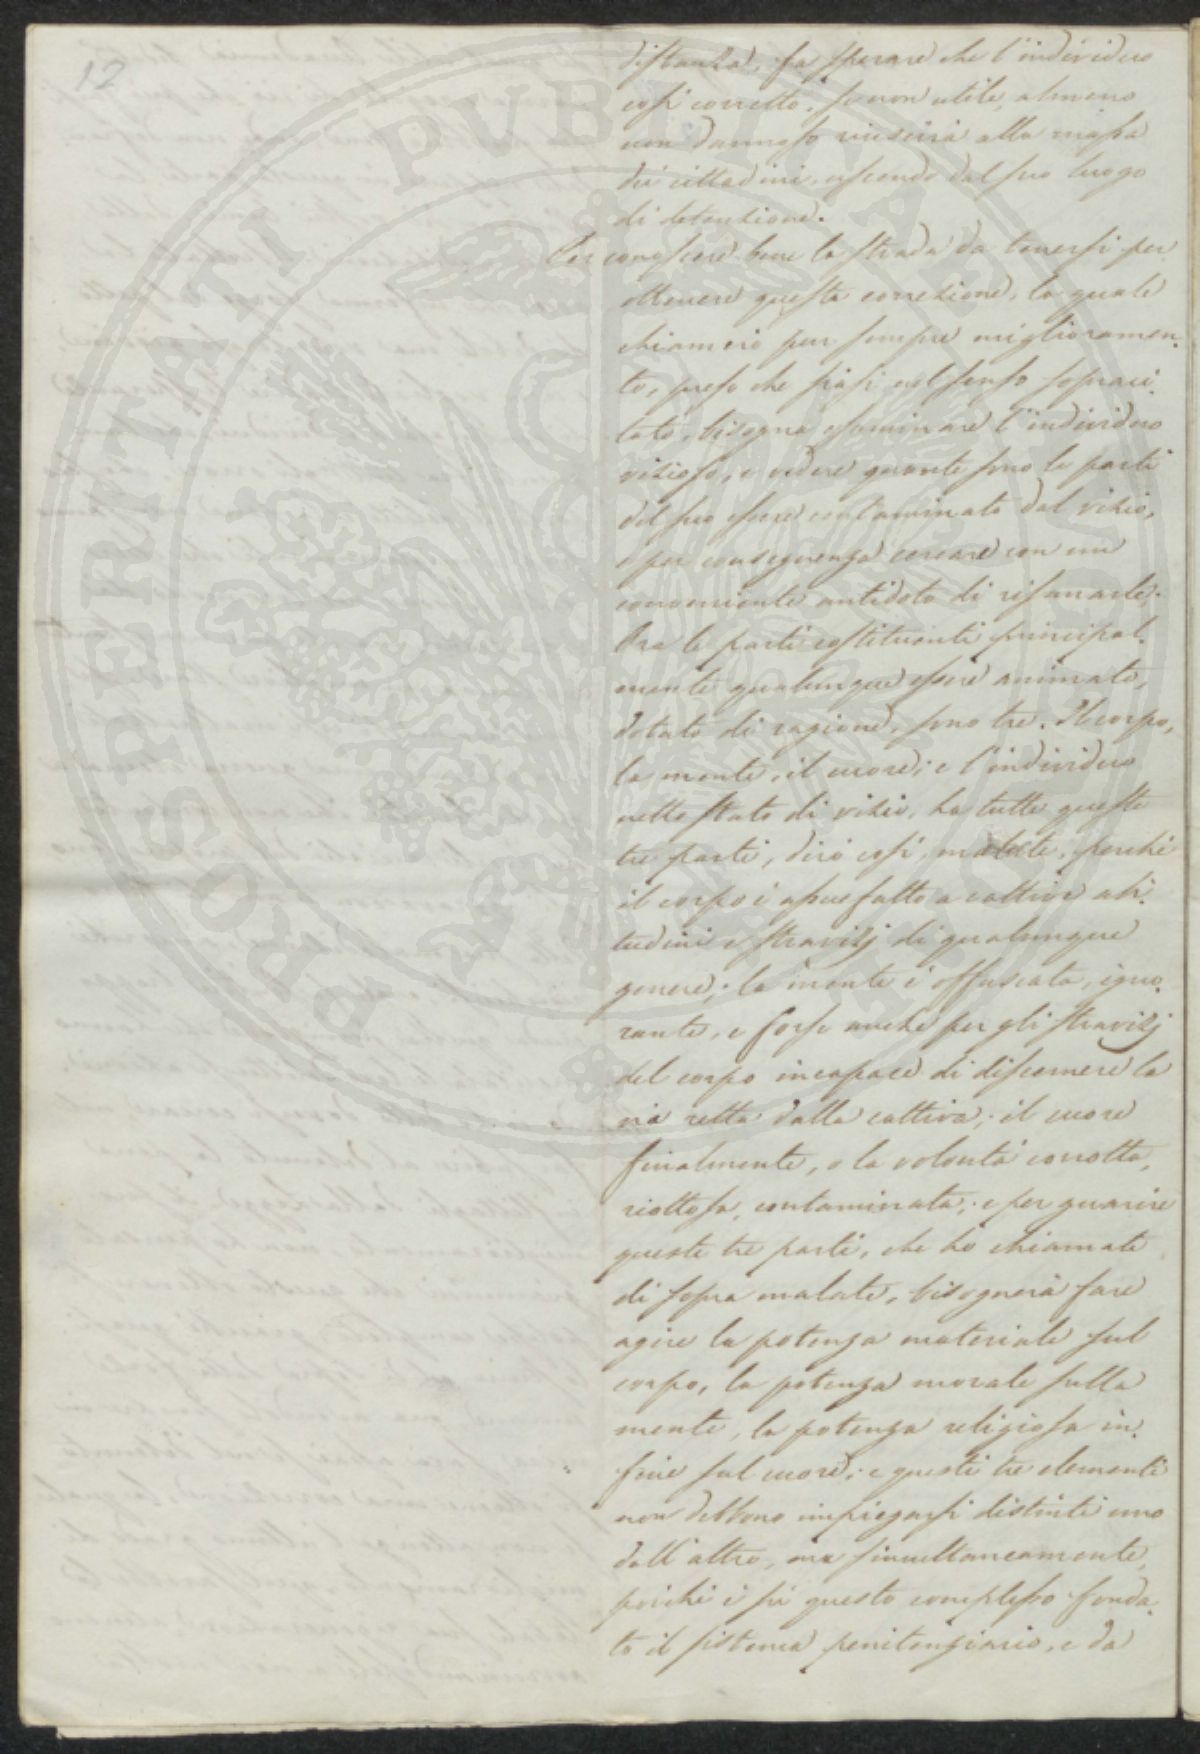 12
PROSPERITATI PUBLICAE AUGENDAE
distanza, fa sperare che l'individuo
così corretto, se non utile, almeno
non dannoso riuscirà alla massa
dei cittadini, escendo dal suo luogo
di detenzione.
Per conoscere bene la strada da tenersi per
ottenere questa correzione, la quale
chiamerò pur sempre miglioramen-
to, preso che siasi nel senso sopraci-
tato, bisogna esaminare l'individuo
vizioso, e vedere quante sono le parti
del suo essere contaminato dal vizio,
e per conseguenza cercare con un
conveniente antidoto di risanarle.
Ora le parti costituenti principal-
mente qualunque essere animato,
dotato di ragione, sono tre. Il corpo,
la mente, il cuore; e l'individuo
nello stato di vizio, ha tutte queste
tre parti, dirò così, malate, perchè
il corpo è assuefatto a cattive abi-
tudini e stravizj di qualunque
genere; la mente è offuscata, igno-
rante, e forse anche per gli stravizj
del corpo incapace di discernere la
via retta dalla cattiva; il cuore
finalmente, o la volontà corrotta,
riottosa, contaminata; e per guarire
queste tre parti, che ho chiamate
di sopra malate, bisognerà fare
agire la potenza materiale sul
corpo, la potenza morale sulla
mente, la potenza religiosa in-
fine sul cuore; e questi tre elementi
non debbono impiegarsi distinti uno
dall'altro, ma simultaneamente,
poichè è su questo complesso fonda-
to il sistema penitenziario, e da